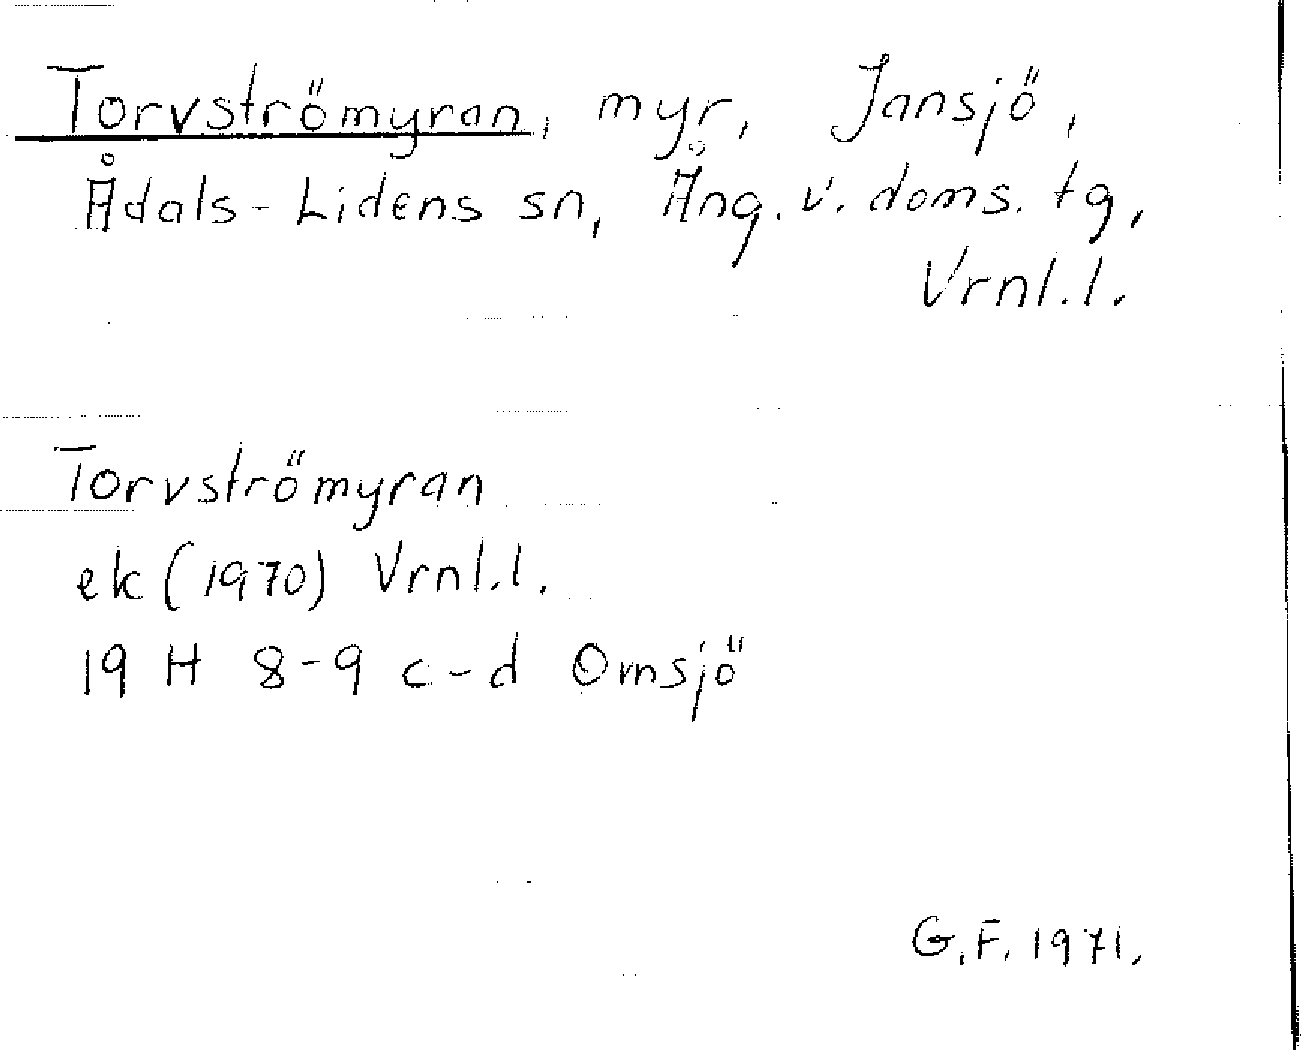 Torvströmyran, myr, Jansjö,
Ådals-Lidens sn, Ång. v. doms. tg,
Vrnl.l.
Torvströmyran
ek (1970) Vrnl.l.
19 H 8-9 c-d Omsjö
G.F. 1971.